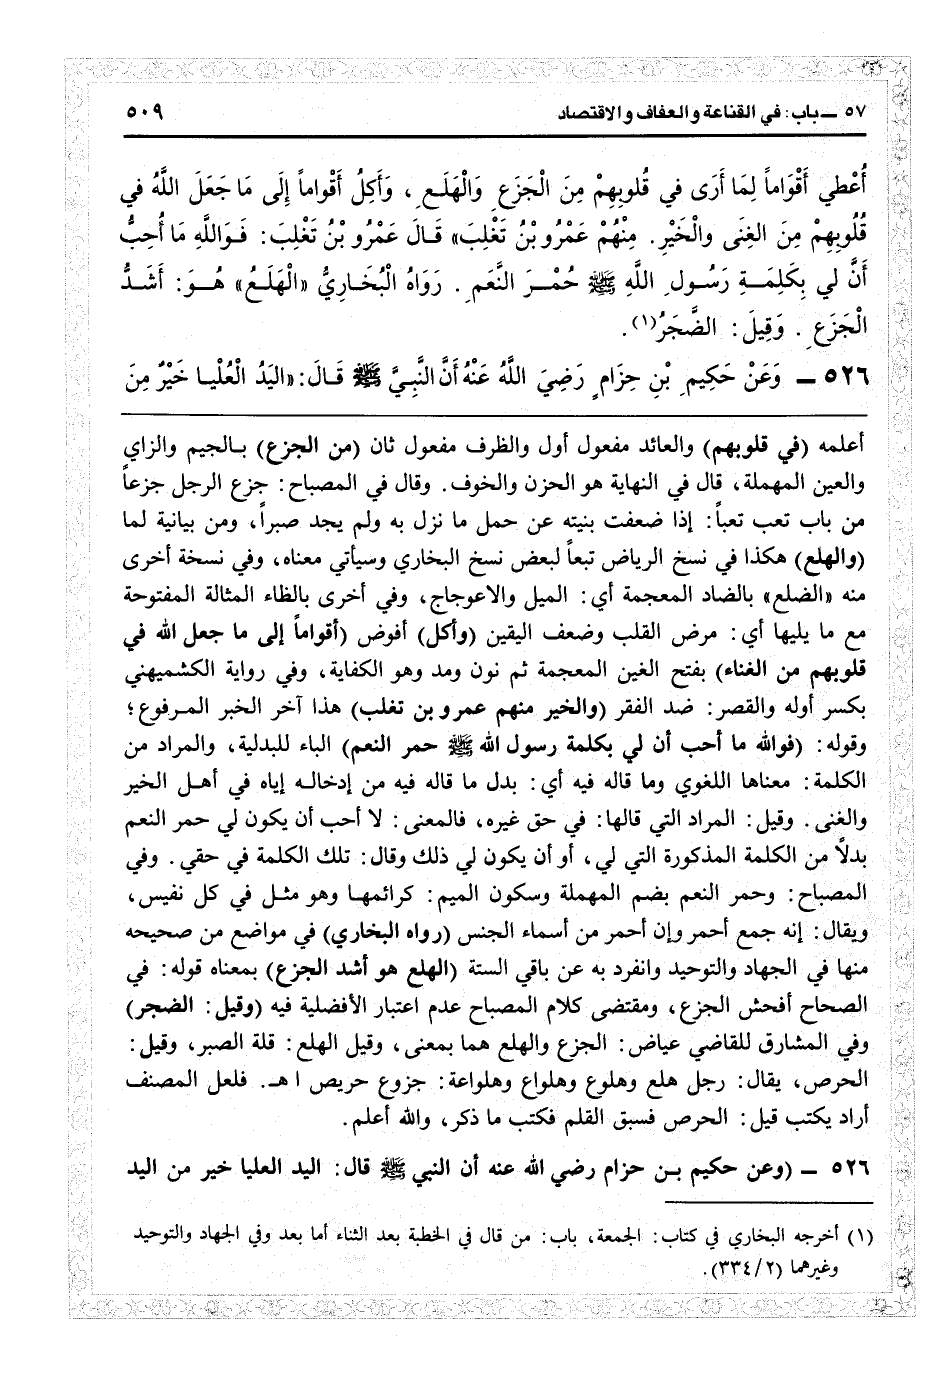 ٥٧ ـ باب: في القناعة والعفاف والاقتصاد ٥٠٩
أُعْطي أَقْوَاماً لِمَا أَرَى في قُلوبِهِمْ مِنَ الْجَزَعِ وَالْهَلَعِ، وَأَكِلُ أَقْواماً إِلَى مَا جَعَلَ اللَّهُ في
قُلُوبِهِمْ مِنَ الغِنَى والْخَيْرِ. مِنْهُمْ عَمْرُو بْنُ تَغْلِبَ» قَالَ عَمْرُو بْنُ تَغْلِبَ: فَوَاللَّهِ مَا أُحِبُّ
أَنَّ لي بِكَلِمَةِ رَسُولِ اللَّهِ ﷺ حُمْرَ النَّعَمِ. رَوَاهُ الْبُخَارِيُّ «الْهَلَعُ» هُوَ: أَشَدُّ
الْجَزَعِ. وَقِيلَ: الضَّجَرُ(١).
٥٢٦ ـ وَعَنْ حَكِيمِ بْنِ حِزَامٍ رَضِيَ اللَّهُ عَنْهُ أَنَّ النَّبِيَّ ﷺ قَالَ: «اليَدُ الْعُلْيا خَيْرٌ مِنَ
أعلمه (في قلوبهم) والعائد مفعول أول والظرف مفعول ثان (من الجزع) بالجيم والزاي
والعين المهملة، قال في النهاية هو الحزن والخوف. وقال في المصباح: جزع الرجل جزعاً
من باب تعب تعباً: إذا ضعفت بنيته عن حمل ما نزل به ولم يجد صبراً، ومن بيانية لما
(والهلع) هكذا في نسخ الرياض تبعاً لبعض نسخ البخاري وسيأتي معناه، وفي نسخة أخرى
منه «الضلع» بالضاد المعجمة أي: الميل والاعوجاج، وفي أخرى بالظاء المثالة المفتوحة
مع ما يليها أي: مرض القلب وضعف اليقين (وأكل) أفوض (أقواماً إلى ما جعل الله في
قلوبهم من الغناء) بفتح الغين المعجمة ثم نون ومد وهو الكفاية، وفي رواية الكشميهني
بكسر أوله والقصر: ضد الفقر (والخير منهم عمرو بن تغلب) هذا آخر الخبر المرفوع؛
وقوله: (فوالله ما أحب أن لي بكلمة رسول الله ﷺ حمر النعم) الباء للبدلية، والمراد من
الكلمة: معناها اللغوي وما قاله فيه أي: بدل ما قاله فيه من إدخاله إياه في أهل الخير
والغنى. وقيل: المراد التي قالها: في حق غيره، فالمعنى: لا أحب أن يكون لي حمر النعم
بدلاً من الكلمة المذكورة التي لي، أو أن يكون لي ذلك وقال: تلك الكلمة في حقي. وفي
المصباح: وحمر النعم بضم المهملة وسكون الميم: كرائمها وهو مثل في كل نفيس،
ويقال: إنه جمع أحمر وإن أحمر من أسماء الجنس (رواه البخاري) في مواضع من صحيحه
منها في الجهاد والتوحيد وانفرد به عن باقي الستة (الهلع هو أشد الجزع) بمعناه قوله: في
الصحاح أفحش الجزع، ومقتضى كلام المصباح عدم اعتبار الأفضلية فيه (وقيل: الضجر)
وفي المشارق للقاضي عياض: الجزع والهلع هما بمعنى، وقيل الهلع: قلة الصبر، وقيل:
الحرص، يقال: رجل هلع وهلوع وهلواع وهلواعة: جزوع حريص ا هـ. فلعل المصنف
أراد يكتب قيل: الحرص فسبق القلم فكتب ما ذكر، والله أعلم.
٥٢٦ ـ (وعن حكيم بن حزام رضي الله عنه أن النبي ﷺ قال: اليد العليا خير من اليد
(١) أخرجه البخاري في كتاب: الجمعة، باب: من قال في الخطبة بعد الثناء أما بعد وفي الجهاد والتوحيد
وغيرهما (٣٣٤/٢).